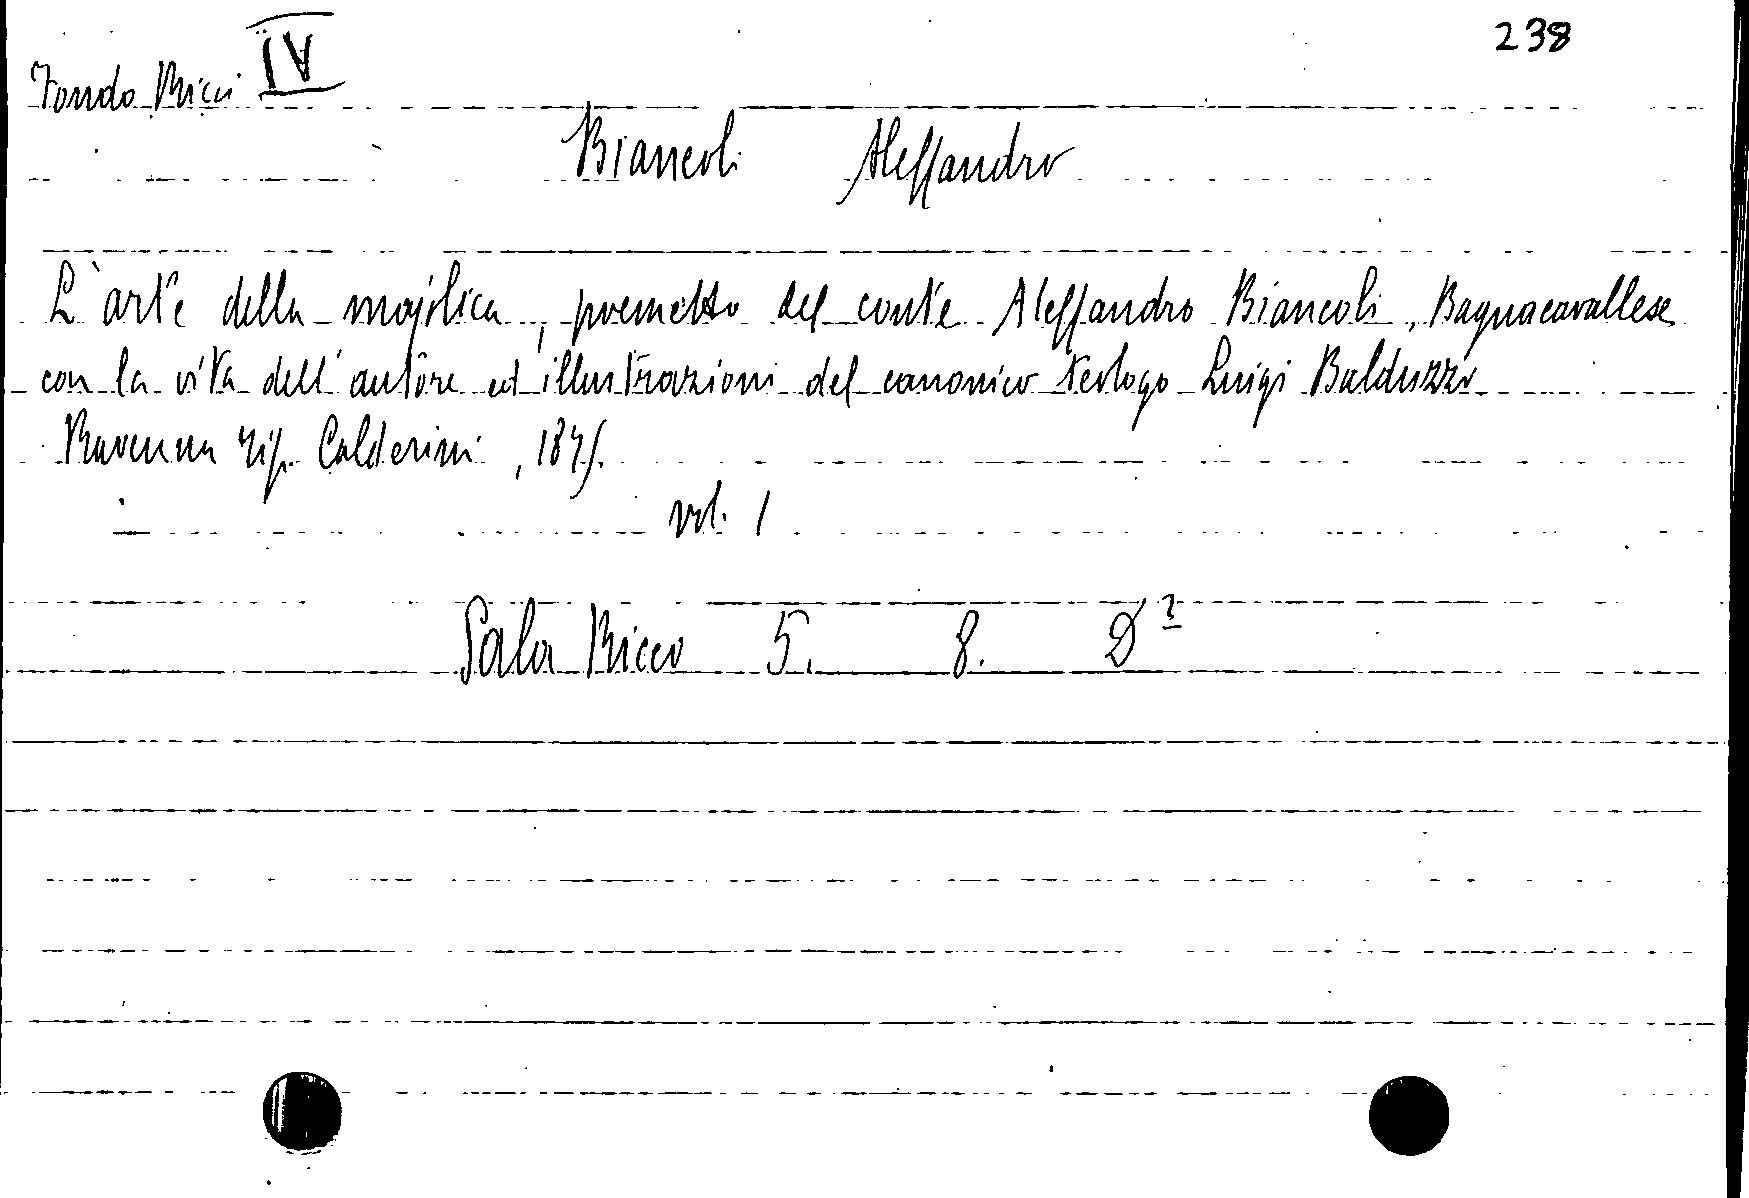 238
Fondo Ricci IV
Biancoli Alessandro
L'arte della majolica, poemetto del conte Alessandro Biancoli, Bagnacavallese
con la vita dell'autore ed illustrazioni del canonico teologo Luigi Balduzzi
Ravenna Tip. Calderini, 1875.
vol. 1
Sala Ricci 5. 8. D²